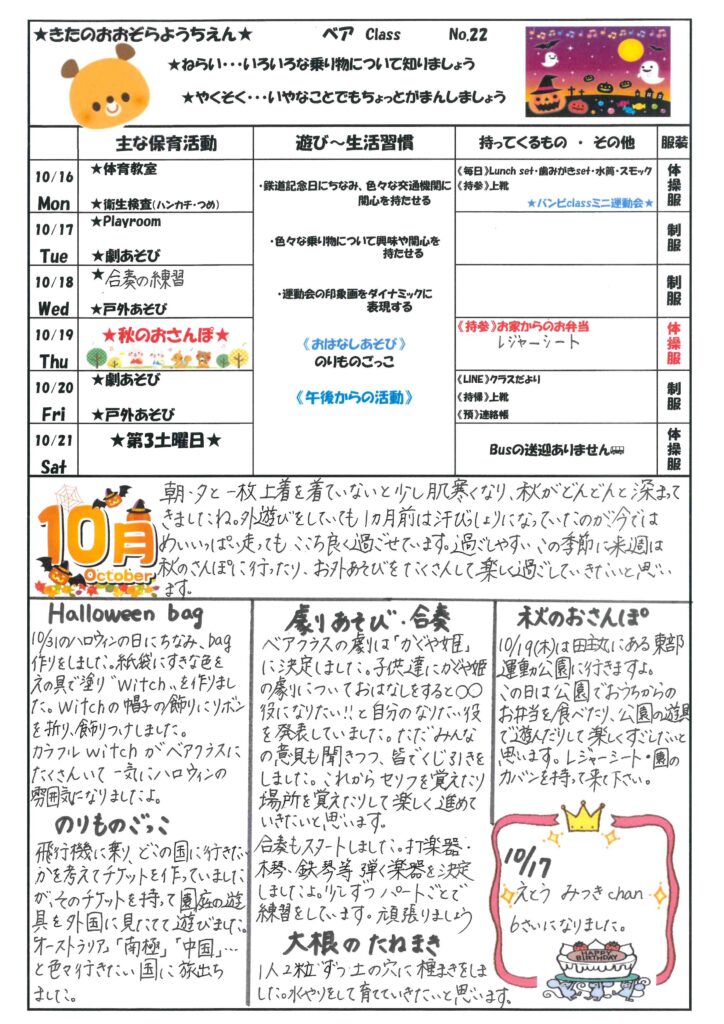 ★きたのおおぞらようちえん★ ベア Class No.22
★ねらい・・・いろいろな乗り物について知りましょう
★やくそく・・・いやなことでもちょっとがまんしましょう
主な保育活動 遊び～生活習慣 持ってくるもの ・ その他 服装
10/16 Mon
★体育教室
★衛生検査(ハンカチ・つめ)
《毎日》Lunch set・歯みがきset・水筒・スモック
《持参》上靴
★バンビclassミニ運動会★
体操服
10/17 Tue
★Playroom
★劇あそび
制服
10/18 Wed
★合奏の練習
★戸外あそび
制服
10/19 Thu
★秋のおさんぽ★
《持参》お家からのお弁当
レジャーシート
体操服
10/20 Fri
★劇あそび
★戸外あそび
《LINE》クラスだより
《持帰》上靴
《預》連絡帳
制服
10/21 Sat
★第3土曜日★
Busの送迎ありません
体操服
・鉄道記念日にちなみ、色々な交通機関に
関心を持たせる
・色々な乗り物について興味や関心を
持たせる
・運動会の印象画をダイナミックに
表現する
《おはなしあそび》
のりものごっこ
《午後からの活動》
10月
October
朝・夕と一枚上着を着ていないと少し肌寒くなり、秋がどんどんと深まって
きましたね。外遊びをしていても1カ月前は汗びっしょりになっていたのが今では
めいいっぱい走っても ここち良く過ごせています。過ごしやすい この季節に来週は
秋のさんぽに行ったり、お外あそびをたくさんして楽しく過ごしていきたいと思い
ます。
Halloween bag
10/31のハロウィンの日にちなみ、bag
作りをしました。紙袋にすきな色を
えの具で塗り"Witch"を作りまし
た。Witchの帽子の飾りにリボン
を折り、飾りつけしました。
カラフルwitchがベアクラスに
たくさんいて一気にハロウィンの
雰囲気になりましたよ。
のりものごっこ
飛行機に乗り、どこの国に行きたい
かを考えてチケットを作っていました
が、そのチケットを持って園庭の遊
具を外国に見たてて遊びました。
オーストラリア」「南極」「中国」…
と色々行きたい国に旅立ち
ました。
劇あそび・合奏
ベアクラスの劇は「かぐや姫」
に決定しました。子供達にかぐや姫
の劇についておはなしをすると〇〇
役になりたい!!と自分のなりたい役
を発表していました。ただみんな
の意見も聞きつつ、皆でくじ引きを
しました。これからセリフを覚えたり
場所を覚えたりして楽しく進めて
いきたいと思います。
合奏もスタートしました。打楽器・
木琴・鉄琴等弾く楽器を決定
しましたよ。少しずつパートごとで
練習をしています。頑張りましょう
大根のたねまき
1人2粒ずつ土の穴に種まきをしま
した。水やりをして育てていきたいと思います。
秋のおさんぽ
10/19(木)は田主丸にある東部
運動公園に行きますよ。
この日は公園でおうちからの
お弁当を食べたり、公園の遊具
で遊んだりして楽しくすごしたいと
思います。レジャーシート・園の
カバンを持って来て下さい。
10/17
えとう みつきchan
6さいになりました。
HAPPY
BIRTHDAY